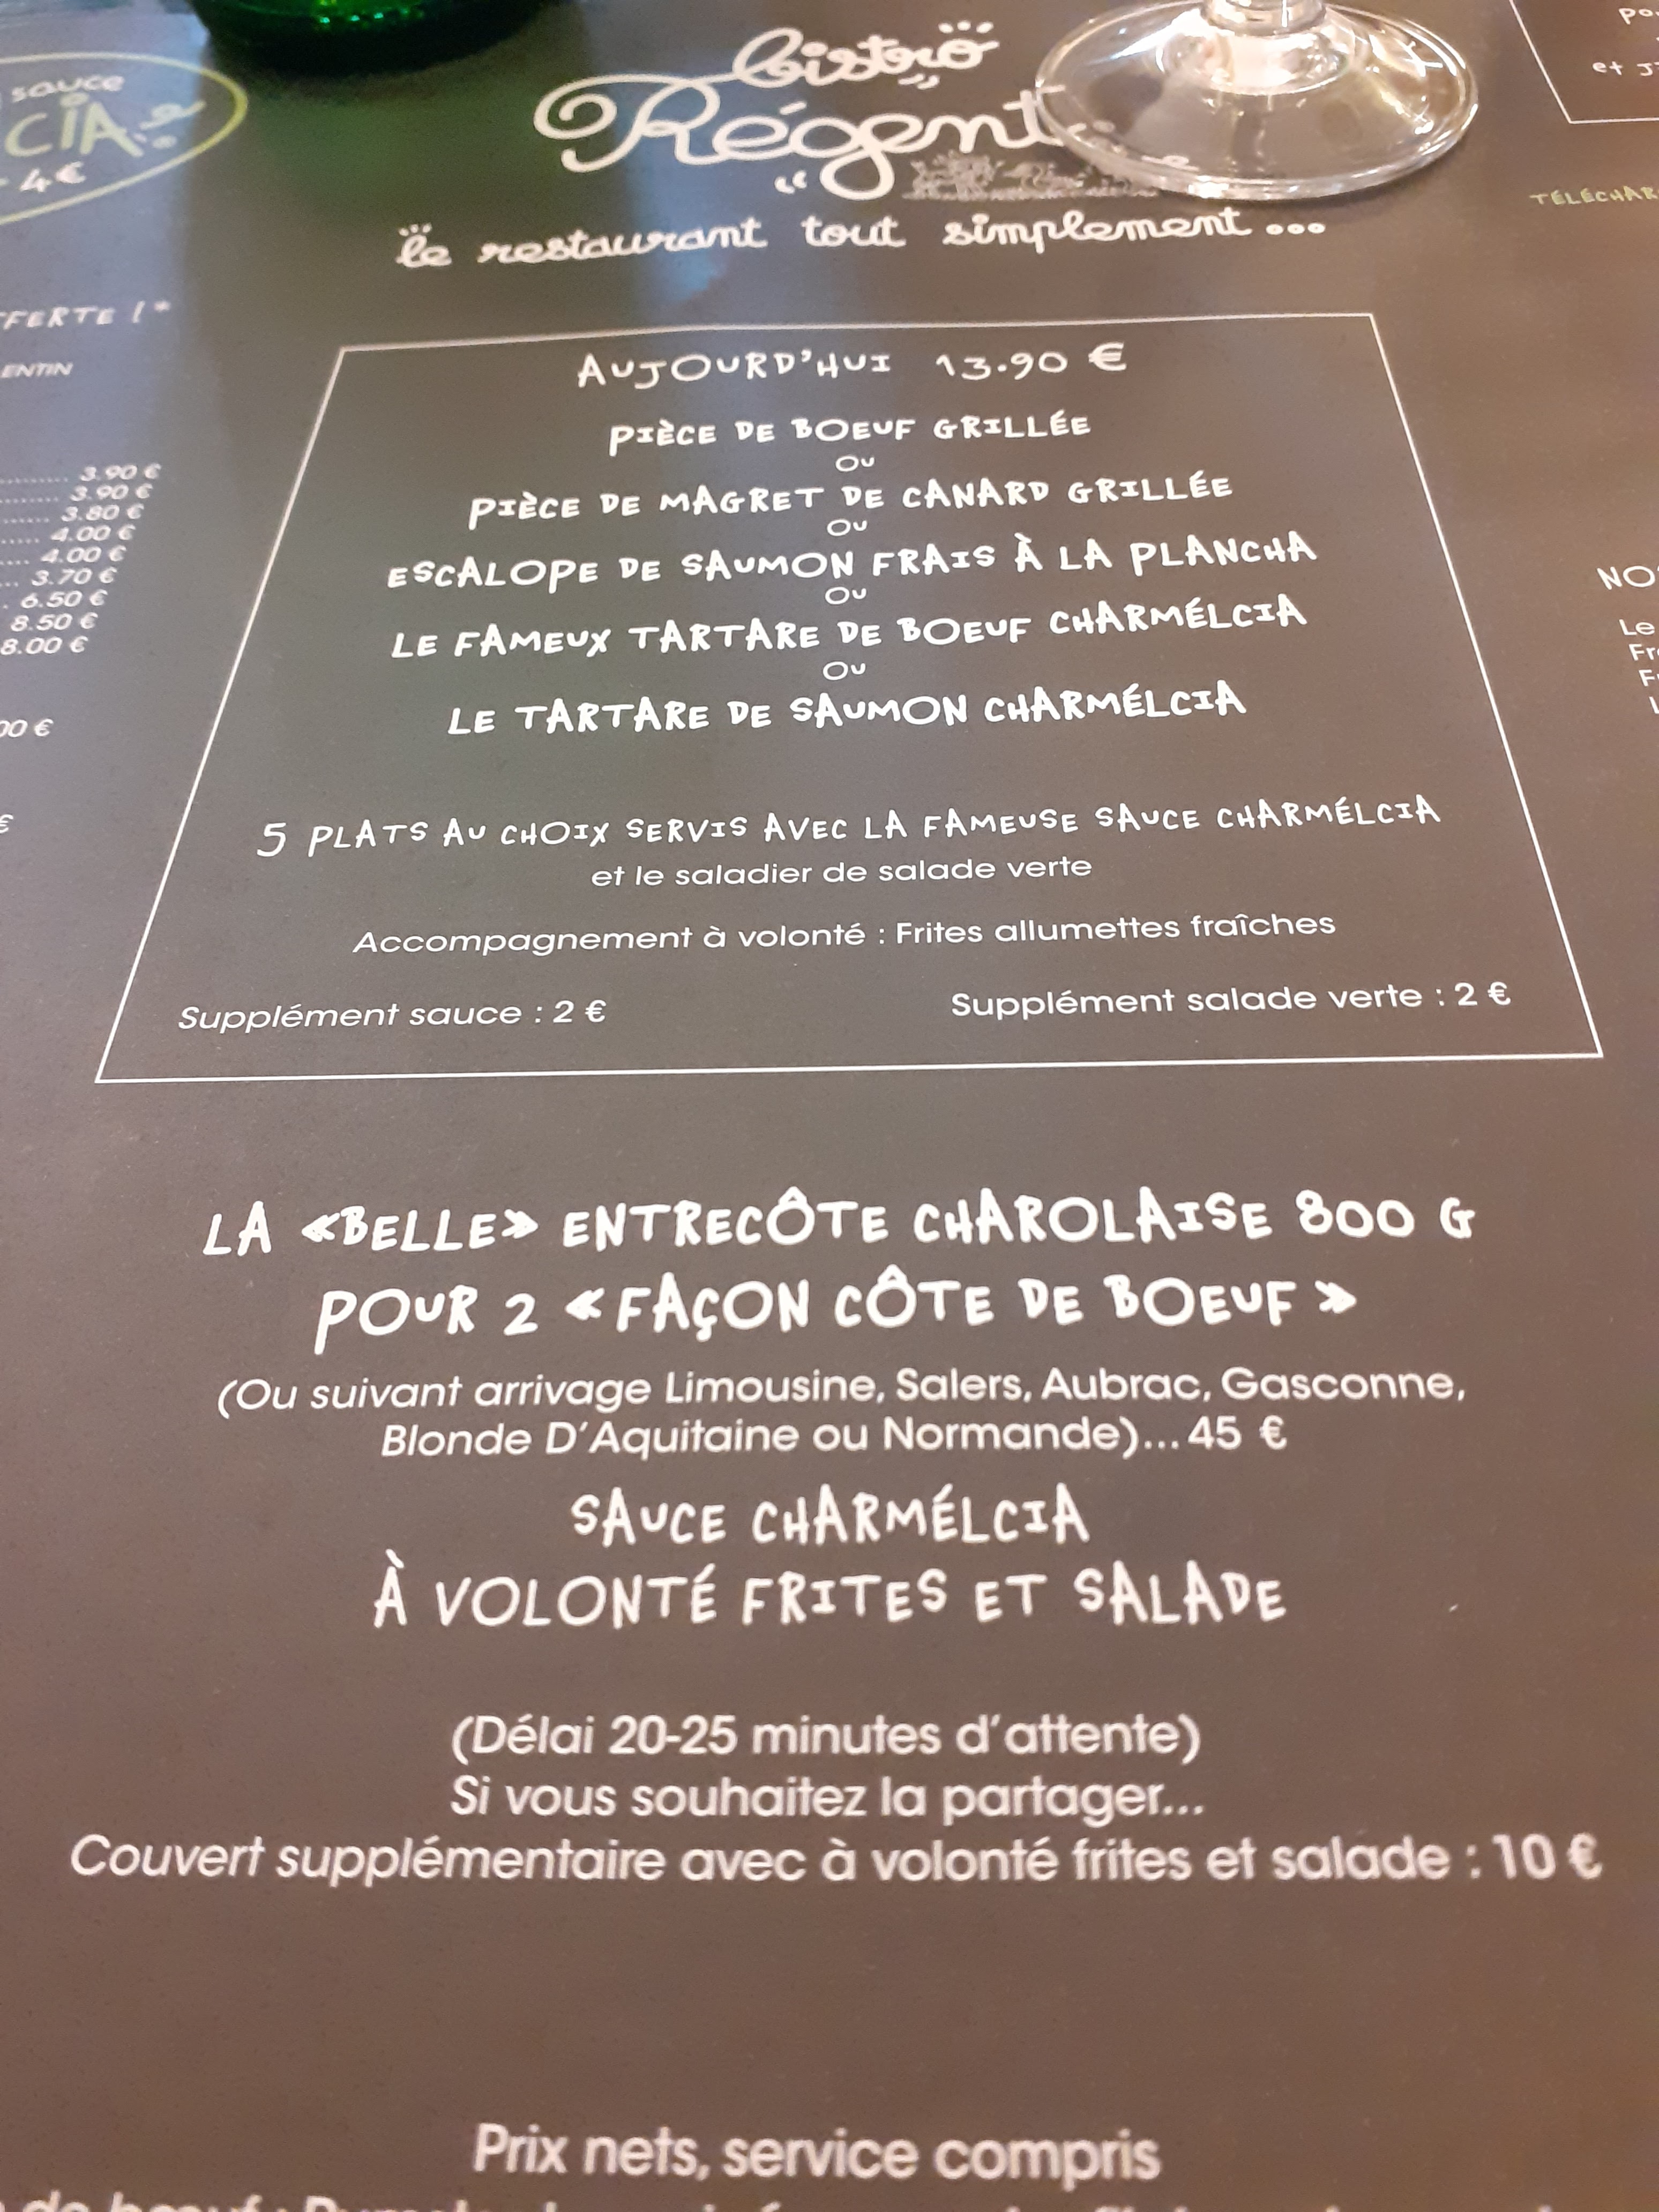 sauce
CIA
4€
bistro
Régent
le restaurant tout simplement...
et
TÉLÉCHAR
FFERTE !*
ENTIN
3.90 €
3.90 €
3.80 €
4.00 €
4.00 €
3.70 €
6.50 €
8.50 €
8.00 €
00 €
€
AUJOURD'HUI 13.90 €
PIÈCE DE BOEUF GRILLÉE
OU
PIÈCE DE MAGRET DE CANARD GRILLÉE
OU
ESCALOPE DE SAUMON FRAIS À LA PLANCHA
OU
LE FAMEUX TARTARE DE BOEUF CHARMÉLCIA
OU
LE TARTARE DE SAUMON CHARMÉLCIA
5 PLATS AU CHOIX SERVIS AVEC LA FAMEUSE SAUCE CHARMÉLCIA
et le saladier de salade verte
Accompagnement à volonté : Frites allumettes fraîches
Supplément sauce : 2 €
Supplément salade verte : 2 €
NO
Le
LA «BELLE» ENTRECÔTE CHAROLAISE 800 G
POUR 2 « FAÇON CÔTE DE BOEUF »
(Ou suivant arrivage Limousine, Salers, Aubrac, Gasconne,
Blonde D'Aquitaine ou Normande)... 45 €
SAUCE CHARMÉLCIA
À VOLONTÉ FRITES ET SALADE
(Délai 20-25 minutes d'attente)
Si vous souhaitez la partager...
Couvert supplémentaire avec à volonté frites et salade : 10 €
Prix nets, service compris